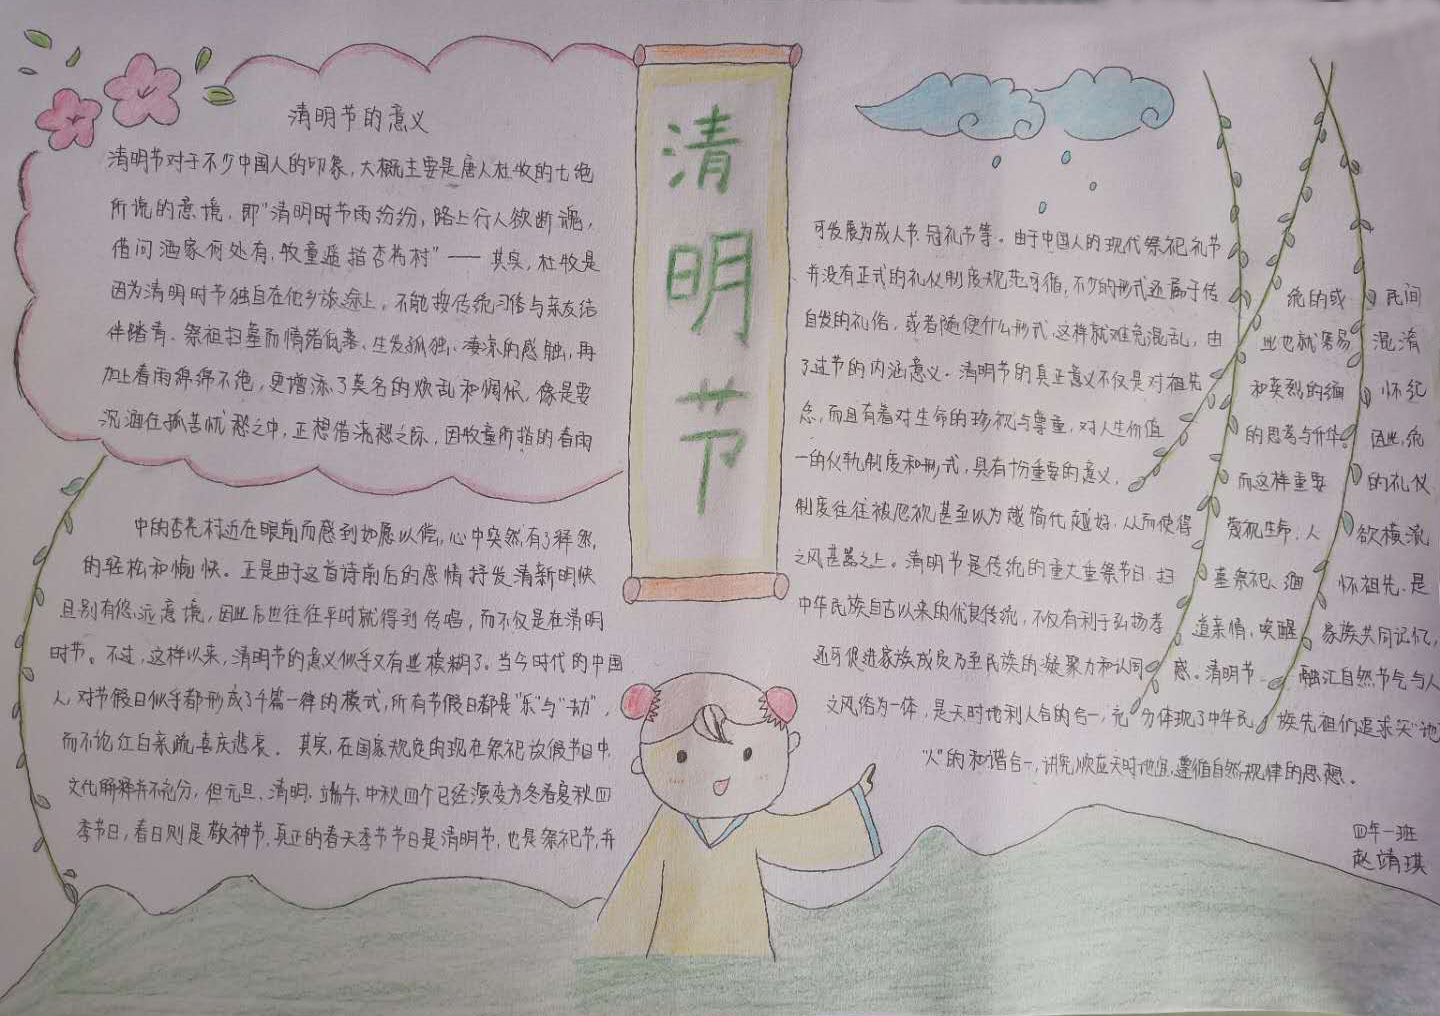 清明节的意义
清明节对于不少中国人的印象，大概主要是唐人杜牧的七绝
所说的意境，即“清明时节雨纷纷，路上行人欲断魂，
借问酒家何处有，牧童遥指杏花村”——其实，杜牧是
因为清明时节独自在他乡旅途上，不能按传统习俗与亲友结
伴踏青、祭祖扫墓而情绪低落、生发孤独、凄凉的感触，再
加上春雨绵绵不绝，更增添了莫名的烦乱和惆怅，像是要
沉湎在孤苦忧愁之中，正想借浇愁之际，因牧童所指的春雨
中的杏花村近在眼前而感到如愿以偿，心中突然有了释然，
的轻松和愉快。正是由于这首诗前后的感情抒发清新明快
且别有悠远意境，因此后世往往平时就得到传唱，而不仅是在清明
时节。不过，这样以来，清明节的意义似乎又有些模糊了。当今时代的中国
人，对节假日似乎都形成了千篇一律的模式，所有节假日都是“乐”与“劫”，
而不论红白亲疏喜庆悲哀。其实，在国家规定的现在祭祀放假节日中，
文化解释并不充分，但元旦、清明、端午、中秋四个已经演变为冬春夏秋四
季节日，春日则是敬神节，真正的春天季节节日是清明节，也是祭祀节，并
清
明
节
可发展为成人节、冠礼节等。由于中国人的现代祭祀礼节
并没有正式的礼仪制度规范可循，不少的形式还属于传 统的或 民间
自发的礼俗，或者随便什么形式，这样就难免混乱，由 此也就容易 混淆
了过节的内涵意义。清明节的真正意义不仅是对祖先 和英烈的缅 怀纪
念，而且有着对生命的珍视与尊重，对人生价值 的思考与升华。 因此，统
一的仪轨制度和形式，具有十分重要的意义， 而这样重要 的礼仪
制度往往被忽视甚至以为越简代越好，从而使得 蔑视生命，人 欲横流
之风甚嚣之上。清明节是传统的重大重祭节日，扫 墓祭祀、缅 怀祖先，是
中华民族自古以来的优良传统，不仅有利于弘扬孝 道亲情，唤醒 家族共同记忆，
还可促进家族成员乃至民族的凝聚力和认同 感。清明节 融汇自然节气与人
文风俗为一体，是天时地利人合的合一，充 分体现了中华民 族先祖们追求“天地
人”的和谐合一，讲究顺应天时地宜，遵循自然规律的思想。
四年一班
赵靖琪